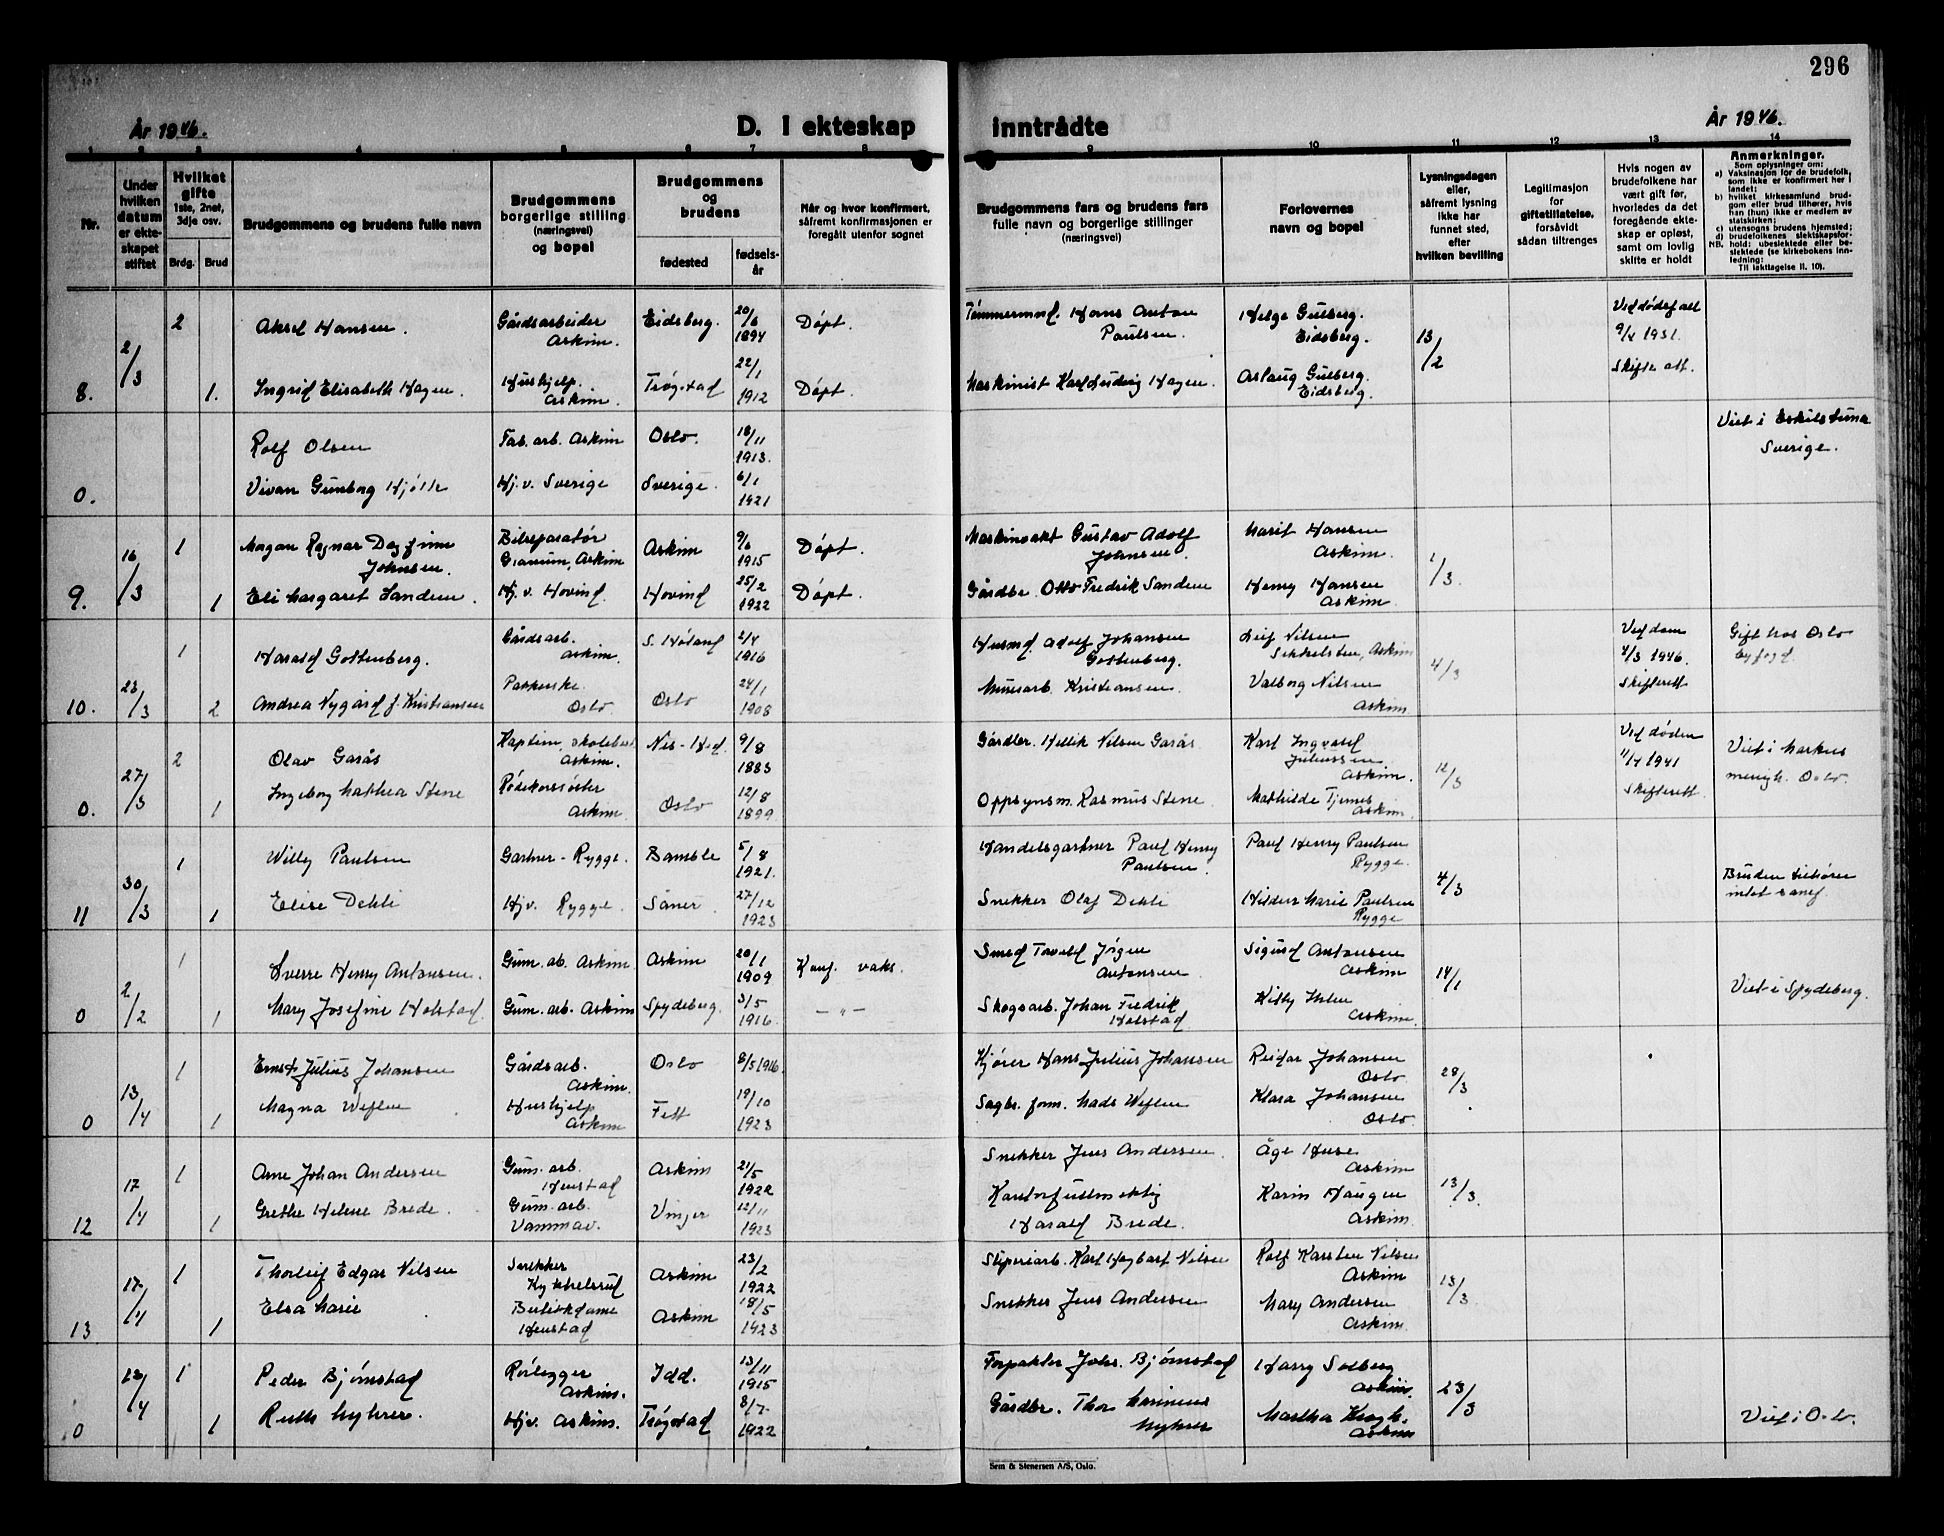 296
År 1946.
D. I ekteskap inntrådte
År 1946.
1 2 3 4 5 6 7 8 9 10 11 12 13 14
Nr.
Under hvilken datum er ekteskapet stiftet
Hvilket gifte 1ste, 2net, 3dje osv.
Brdg.
Brud
Brudgommens og brudens fulle navn
Brudgommens borgerlige stilling (næringsvei) og bopel
Brudgommens og brudens
fødested
fødselsår
Når og hvor konfirmert, såfremt konfirmasjonen er foregått utenfor sognet
Brudgommens fars og brudens fars fulle navn og borgerlige stillinger (næringsvei)
Forlovernes navn og bopel
Lysningsdagen eller, såfremt lysning ikke har funnet sted, efter hvilken bevilling
Legitimasjon for giftetillatelse, forsåvidt sådan tiltrenges
Hvis nogen av brudefolkene har vært gift før, hvorledes da det foregående ekteskap er opløst, samt om lovlig skifte er holdt
Anmerkninger.
Som oplysninger om:
a) Vaksinasjon for de brudefolk, som ikke er konfirmert her i landet;
b) hvilket kirkesamfund brudgom eller brud tilhører, hvis han (hun) ikke er medlem av statskirken;
c) utensogns brudens hjemsted;
d) brudefolkenes slektskapsforhold: ubeslektede eller beslektede (se kirkebokens innledning:
NB.
Til iakttagelse II. 10).
8. 2/3 2 Aksel Hansen. Gårdsarbeider Askim. Eidsberg. 20/6 1894 Døpt. Tømmermd. Hans Anton Paulsen Helge Gulberg. Eidsberg. 13/2 Ved dødsfall 9/4 1931. Skifte att.
1. Ingrid Elisabeth Hagen. Hushjelp. Askim. Trøgstad 22/1 1912 Døpt. Maskinist Karl Ludvig Hagen. Aslaug Gulberg. Eidsberg.
0. Rolf Olsen Fab. arb. Askim Oslo. 18/11 1913. Viet i Eskilstuna Sverige.
Vivan Gunborg Hjölte Hj. v. Sverige Sverige. 6/1 1921
9. 16/3 1 Magnar Ragnar Dagfinn Johnsen. Bilreparatør Granum, Askim Askim 9/6 1915 Døpt. Maskinvakt Gustav Adolf Johnsen. Marit Hansen Askim. 1/3.
1 Eli Margaret Sandem. Hj. v. Hovind. Hovind 25/2 1922 Døpt. Gårdbr. Otto Fredrik Sandem Henry Hansen Askim.
10. 23/3 1 Harald Gottenberg. Gårdsarb. Askim. S. Høland 2/4 1916 Husmd. Adolf Johansen Gottenberg. Leif Nilsen Sekkelsten, Askim 4/3 Ved dom 4/3 1946. Skifterett Gift hos Oslo byfogd.
2 Andrea Nygård f. Kristiansen Oslo Oslo 24/1 1908 Murarb. Kristiansen. Valborg Nilsen Askim.
0. 27/3 2 Olav Garås Kaptein, skolebest. Askim. Nes-Hed. 9/8 1883 Gårdbr. Hellik Nilsen Garås Karl Ingvald Juliussen Askim. 12/3 Ved døden 11/4 1941 Skifterett Viet i Markus menigh. Oslo.
1 Ingeborg Mathea Stene Rødekorssøster Askim. Oslo 12/8 1899 Oppsynsm. Rasmus Stene. Mathilde Tjernes Askim.
11 30/3 1 Willy Paulsen Gartner - Rygge. Bamble 5/8 1921. Handelsgartner Paul Henry Paulsen. Paul Henry Paulsen Rygge. 4/3 Bruden tilhører intet samf.
1 Elise Dehli Hjv. Rygge. Såner 27/12 1923 Snekker Olaf Dehli Hildur Marie Paulsen Rygge
0 2/2 1 Sverre Henry Antonsen. Gum. ab. Askim. Askim 20/1 1909 Konf. vaks. Smed Torvald Jørgen Antonsen Sigurd Antonsen Askim 14/1 Viet i Spydeberg.
1 Mary Josefine Holstad Gum. arb. Askim Spydeberg. 3/5 1916 — " — Skogsarb. Johan Fredrik Holstad Kitty Ihlen Askim
0 13/4 1 Ernst Julius Johansen Gårdsarb. Askim. Oslo 8/5 1916. Kjører Hans Julius Johansen Reidar Johansen Oslo. 28/3
1 Magna Weflen Hushjelp Askim Fett 19/10 1923 Sagbr. form. Mads Weflen Klara Johansen Oslo
12 17/4 1 Arne Johan Andersen Gum. arb. Henstad Askim 21/5 1922 Snekker Jens Andersen. Åge Huse Askim 13/3.
1 Grethe Helene Brede. Gum. arb. Vammav. Vinger 12/11 1923 Kontorfullmektig Harald Brede. Karin Haugen Askim.
13 17/4 1 Thorleif Edgar Nilsen Snekker Kykkelsrud Askim 23/2 1922 Sliperiarb. Karl Hagbart Nilsen Rolf Karsten Nilsen Askim 13/3
1 Elsa Marie Butikkdame Henstad Askim 18/5 1923 Snekker Jens Andersen Mary Andersen Askim.
0 28/4 1 Peder Bjørnstad Rørlegger Askim. Idd. 13/11 1915 Forpakter Johs. Bjørnstad Harry Solberg Askim. 23/3 Viet i Oslo.
1 Ruth Myhrer. Hjv. Askim. Trøgstad 8/7 1922 Gårdbr. Thor Marinius Myhrer Martha Krogh. Askim
Sem & Stenersen A/S, Oslo.